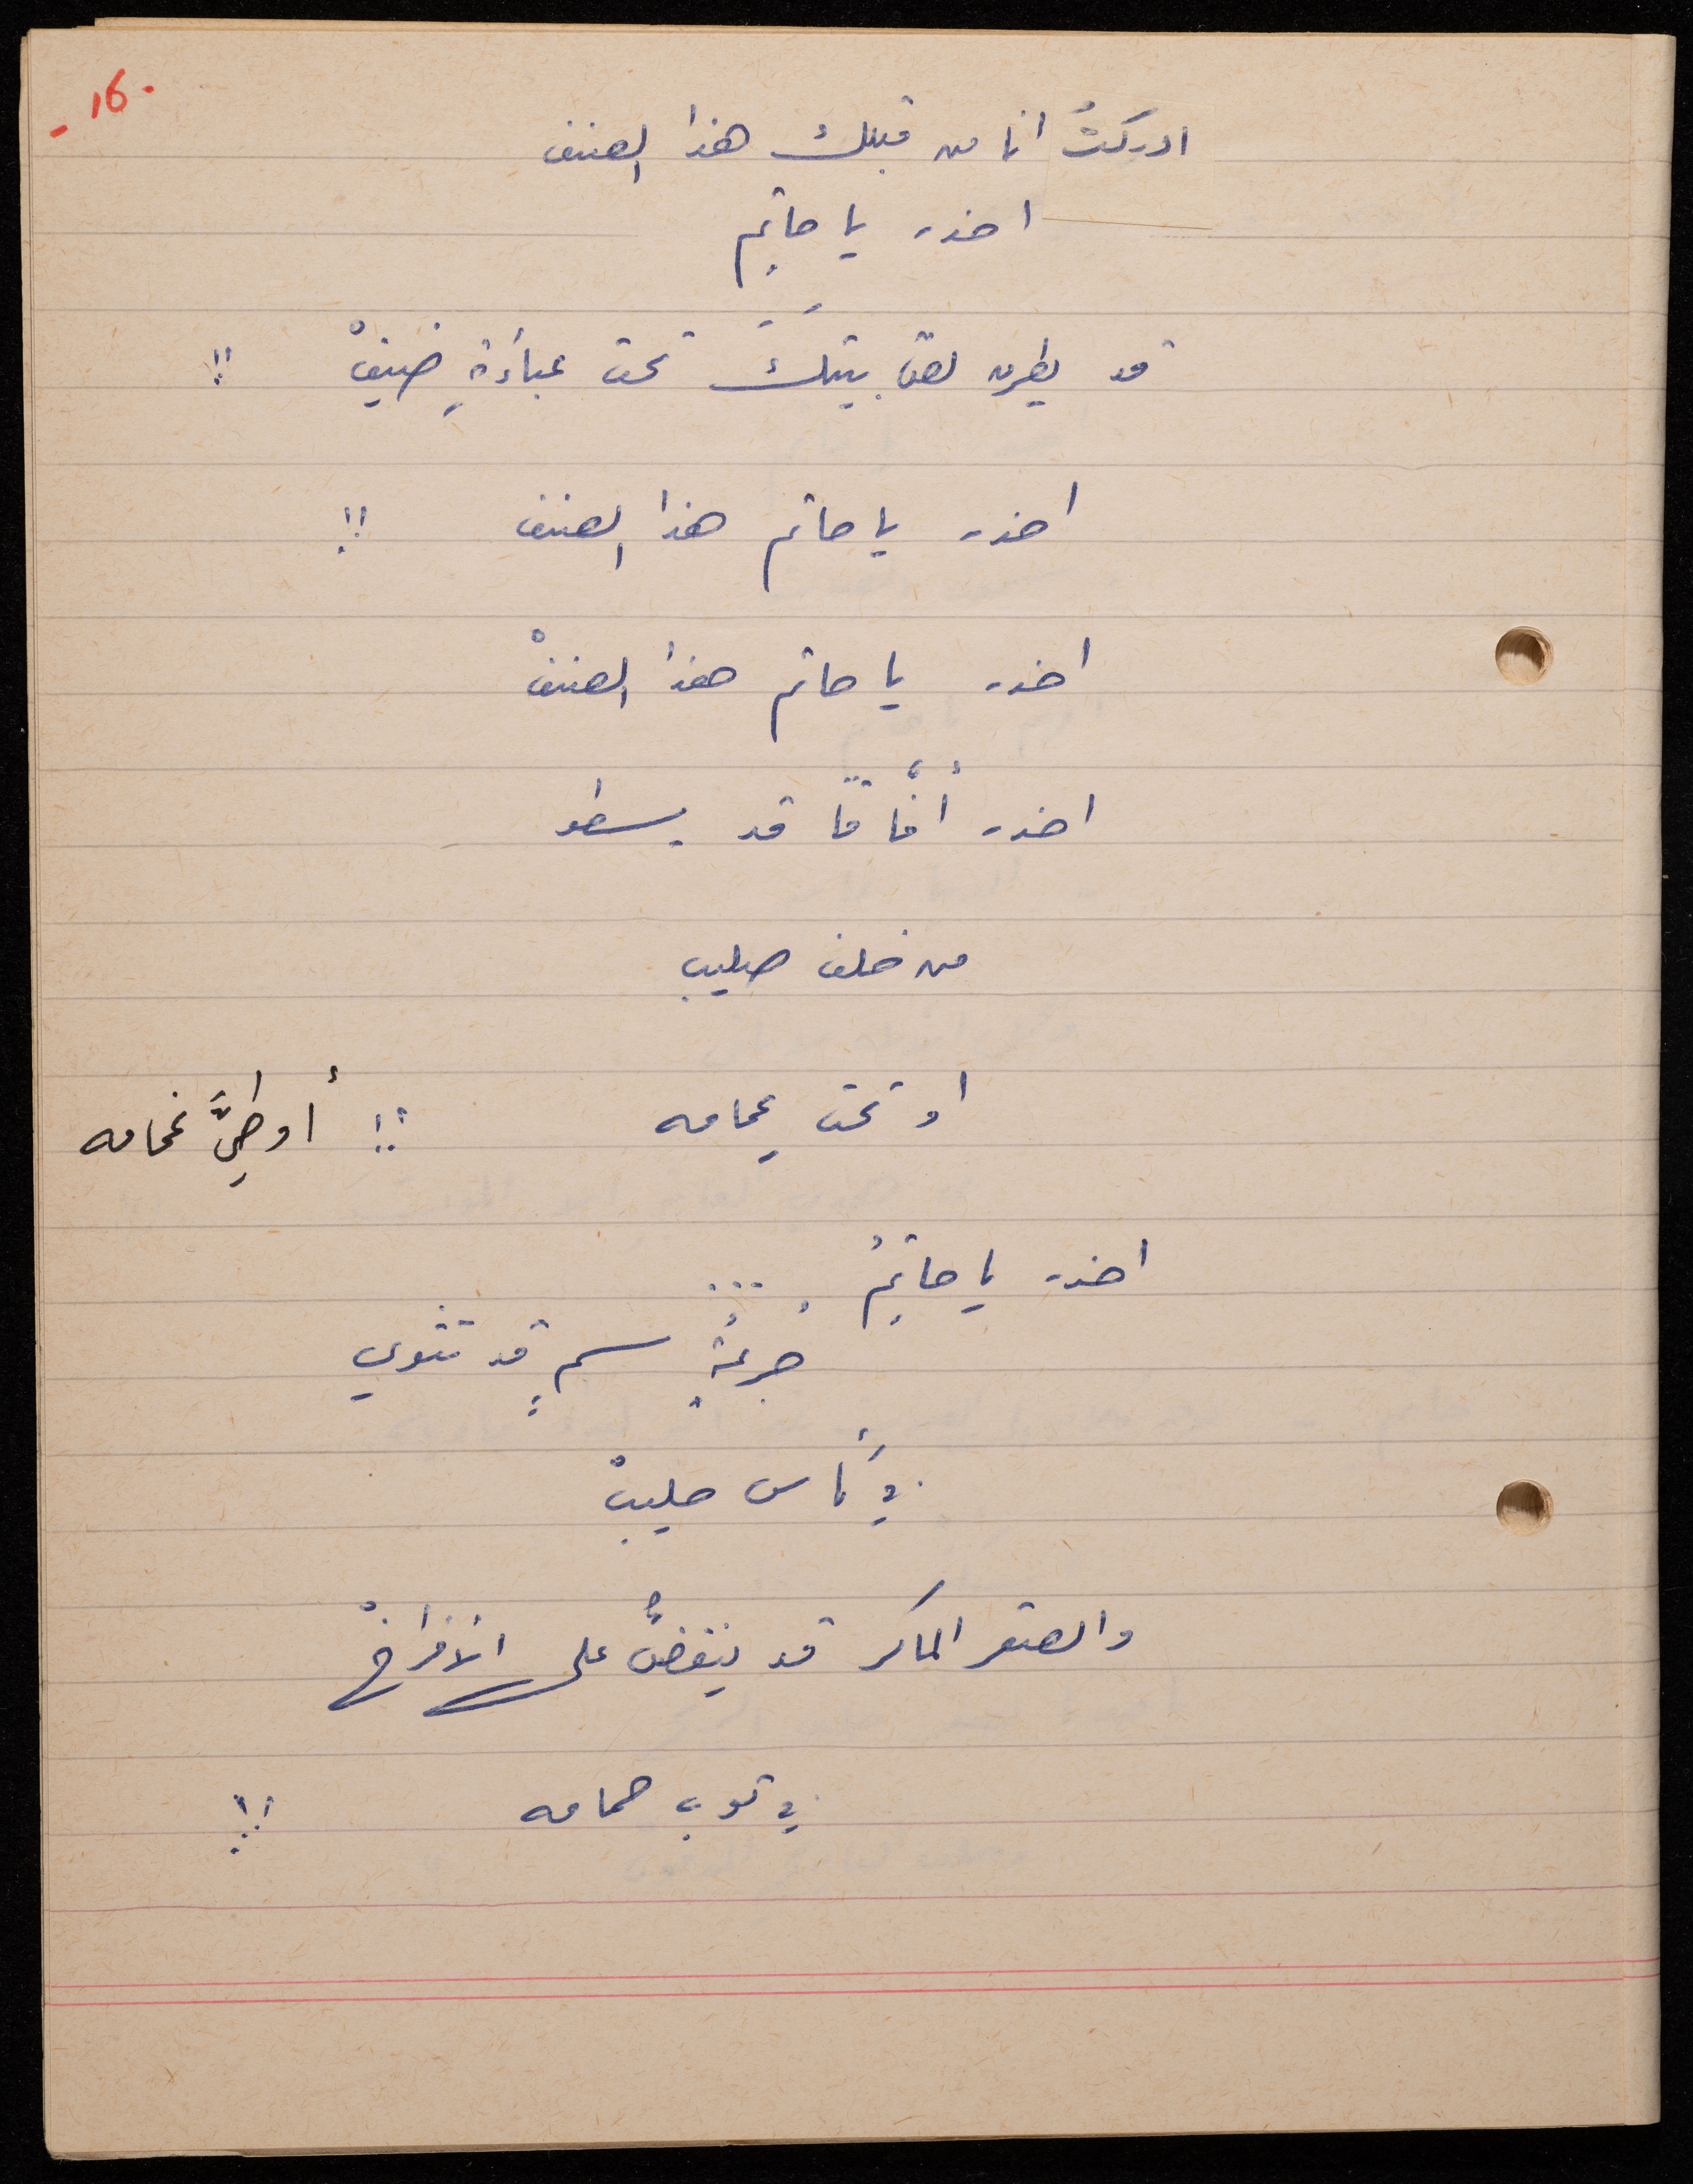 16.
ادركتُ انا من قبلك هذا الصنف
احذر يا حاتِم
قد يطرق لصّ بيتَكَ تحت عباءَةِ ضيفْ !!
احذر يا حاتم هذا الصنف !!
احذر يا حاتم هذا الصنفْ
احذر أفّاقًا قد يسطو
من خلف صليب
او تحت عمامه !! أو طيَّ غمامه
احذر يا حاتِمُ ...
جُرعُةِ سمٍ قد تثوي
في كَأس حليبْ
والصقر الماكر قد ينقضُّ على الأفراخْ
في ثوب حمامه !!